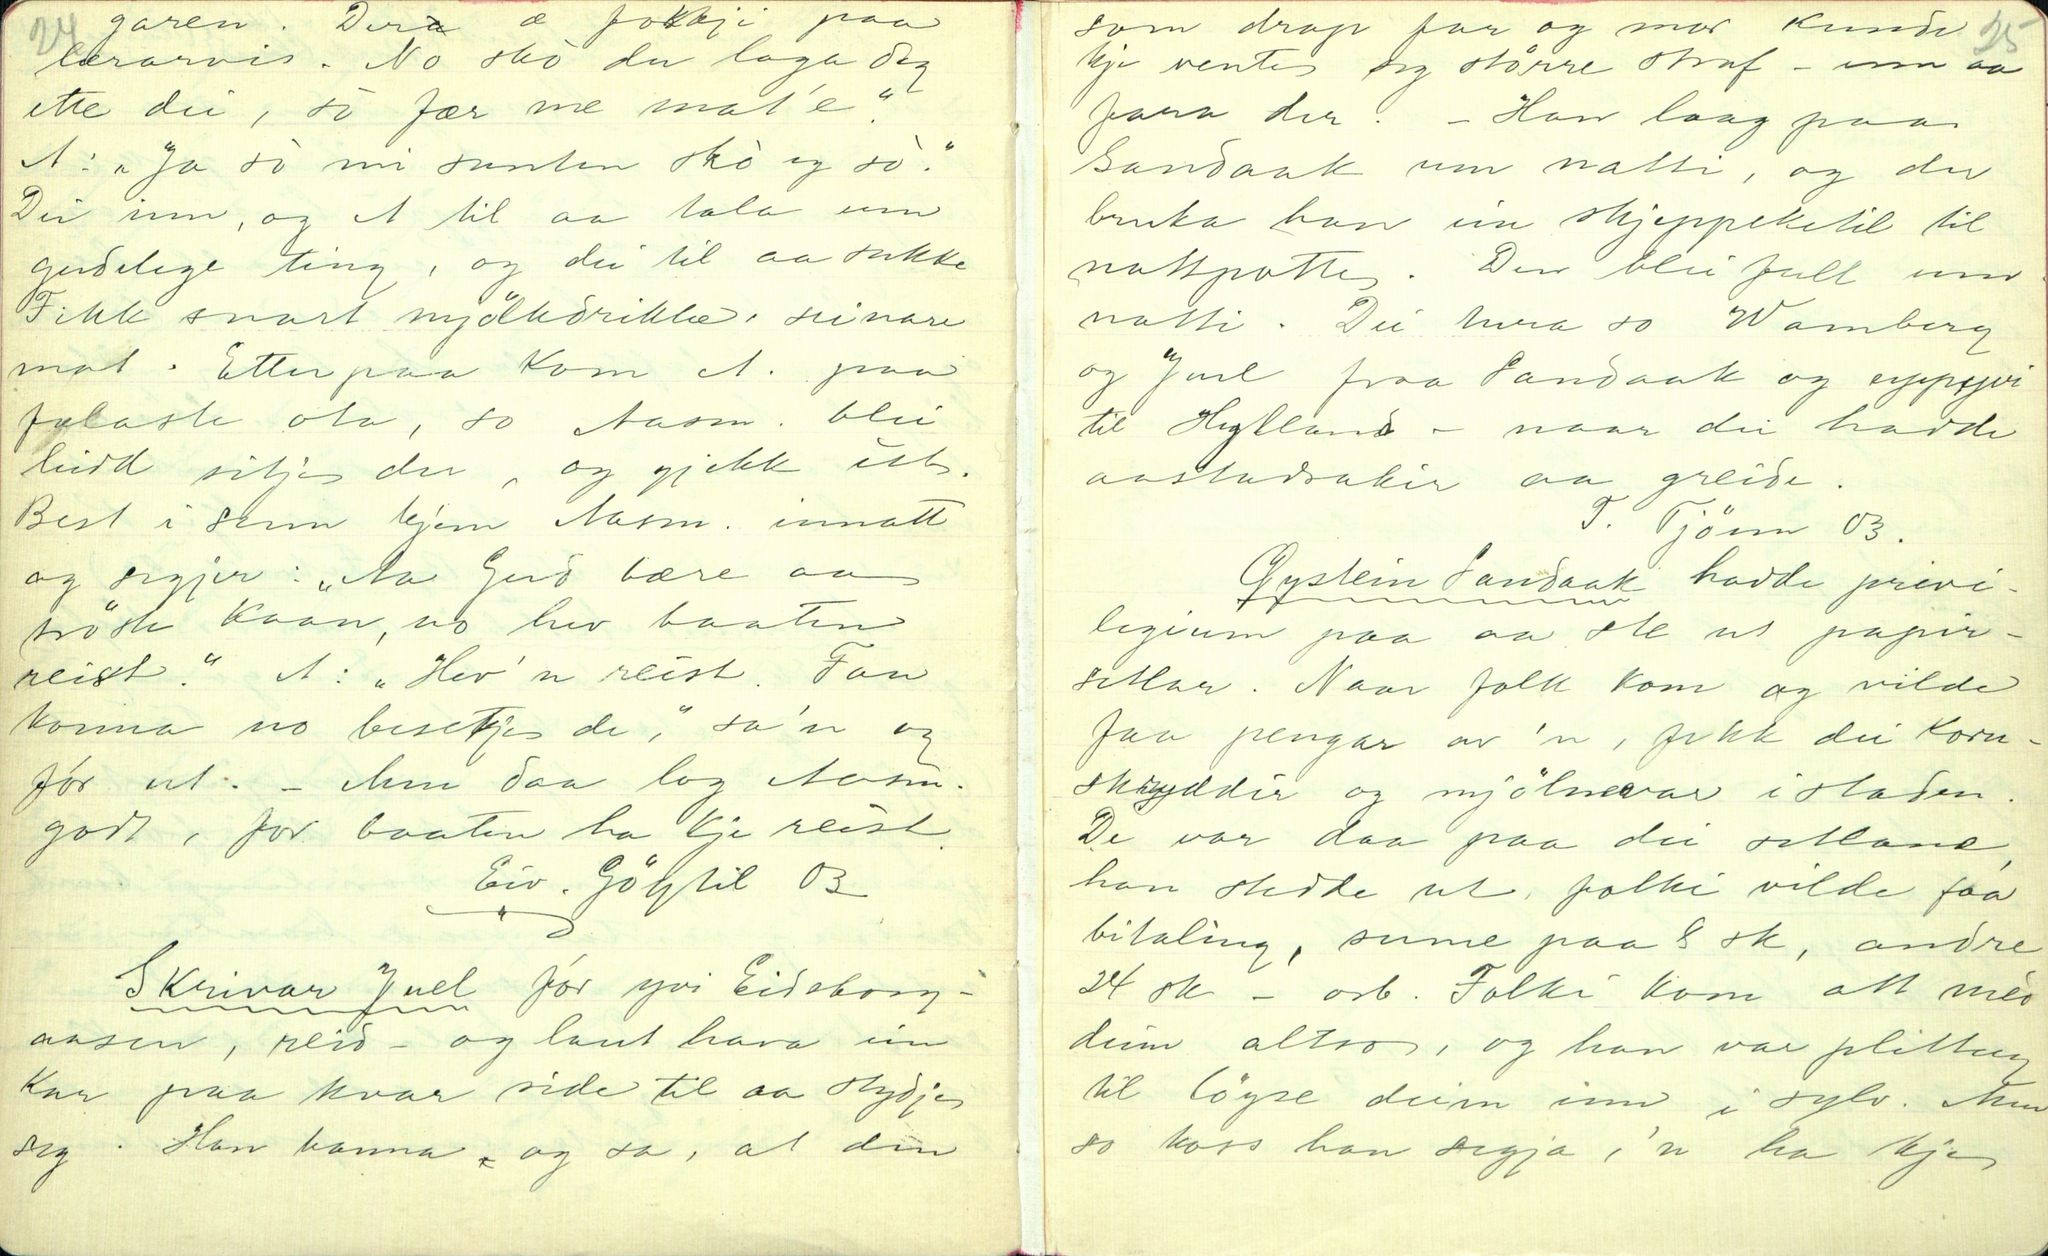 24
garen. Dera æ fokkji paa
lærarvis. No sko du laga deg
ette dei, så fær me mat'e."
A: "Ja så mi sunten skò eg sò."
Dei inn, og A til aa tala um
gudelege ting, og dei til aa sukke
Fikk snart mjölkdrikke, seinare
mat. Etterpaa kom A. paa
falaste ota, so Aasm. blei
leidd sitje der, og gjekk ut.
Best i senn kjem Aasm. innatt
og segjer: "Aa Gud bære aa
tröste kaan, no hev baaten
reist." A: "Hev'n reist. Fan
konna no besetje de," sa'n og
fór ut. – Men daa log Aasm.
godt, for baaten ha kje reist.
Eiv. Göytil 03
Skrivar Juel fór yvi Eidsborg-
aasen, reid – og laut hava ein
kar paa kvar side til aa stydje
seg. Han banna og sa, at den
25
som drap far og mor kunde
kje vente seg större straf – enn aa
fara der. – Han laag paa
Sandaak um natti, og der
bruka han ein skjeppeketil til
nattpotte. Den blei full um
natti. Dei bera so Wamberg
og Juel fraa Sandaak og uppyvi
til Hylland – naar dei hadde
aastadsakir aa greide.
T. Tjönn 03.
Öystein Sandaak hadde privi-
legium paa aa ste ut papir-
setlar. Naar folk kom og vilde
faa pengar av'n, fekk dei korn-
skryddir og mjölnevar i staden.
De var daa paa dei setlane,
han stedde ut, folki vilde faa
bitaling, sume paa 8 sk, andre
24 sk – osb. Folki kom att med
deim altso, og han var plittug
til löyse deim inn i sylv. Men
so koss han segja, 'n ha kje